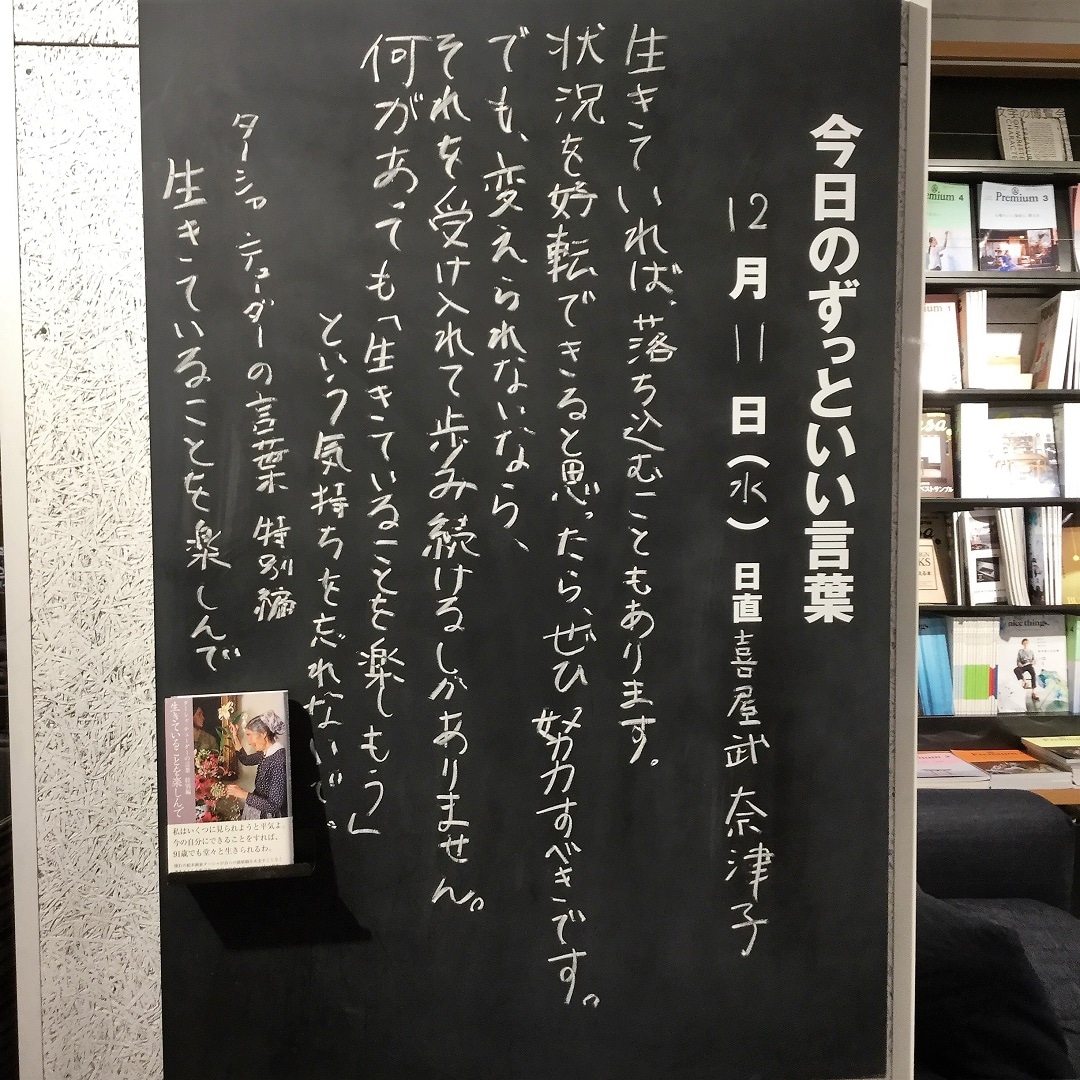 今日のずっといい言葉
12月11日(水) 日直 喜屋武 奈津子
生きていれば、落ち込むこともあります。
状況を好転できると思ったら、ぜひ努力すべきです。
でも、変えられないなら、
それを受け入れて歩み続けるしかありません。
何があっても「生きていることを楽しもう」
という気持ちを忘れないで。
ターシャ・テューダーの言葉 特別編
生きていることを楽しんで
生きていることを楽しんで
私はいくつに見られようと平気よ。
今の自分にできることをすれば、
91歳でも堂々と生きられるわ。
文字の博覧会
Premium 4
Premium 3
nice things.